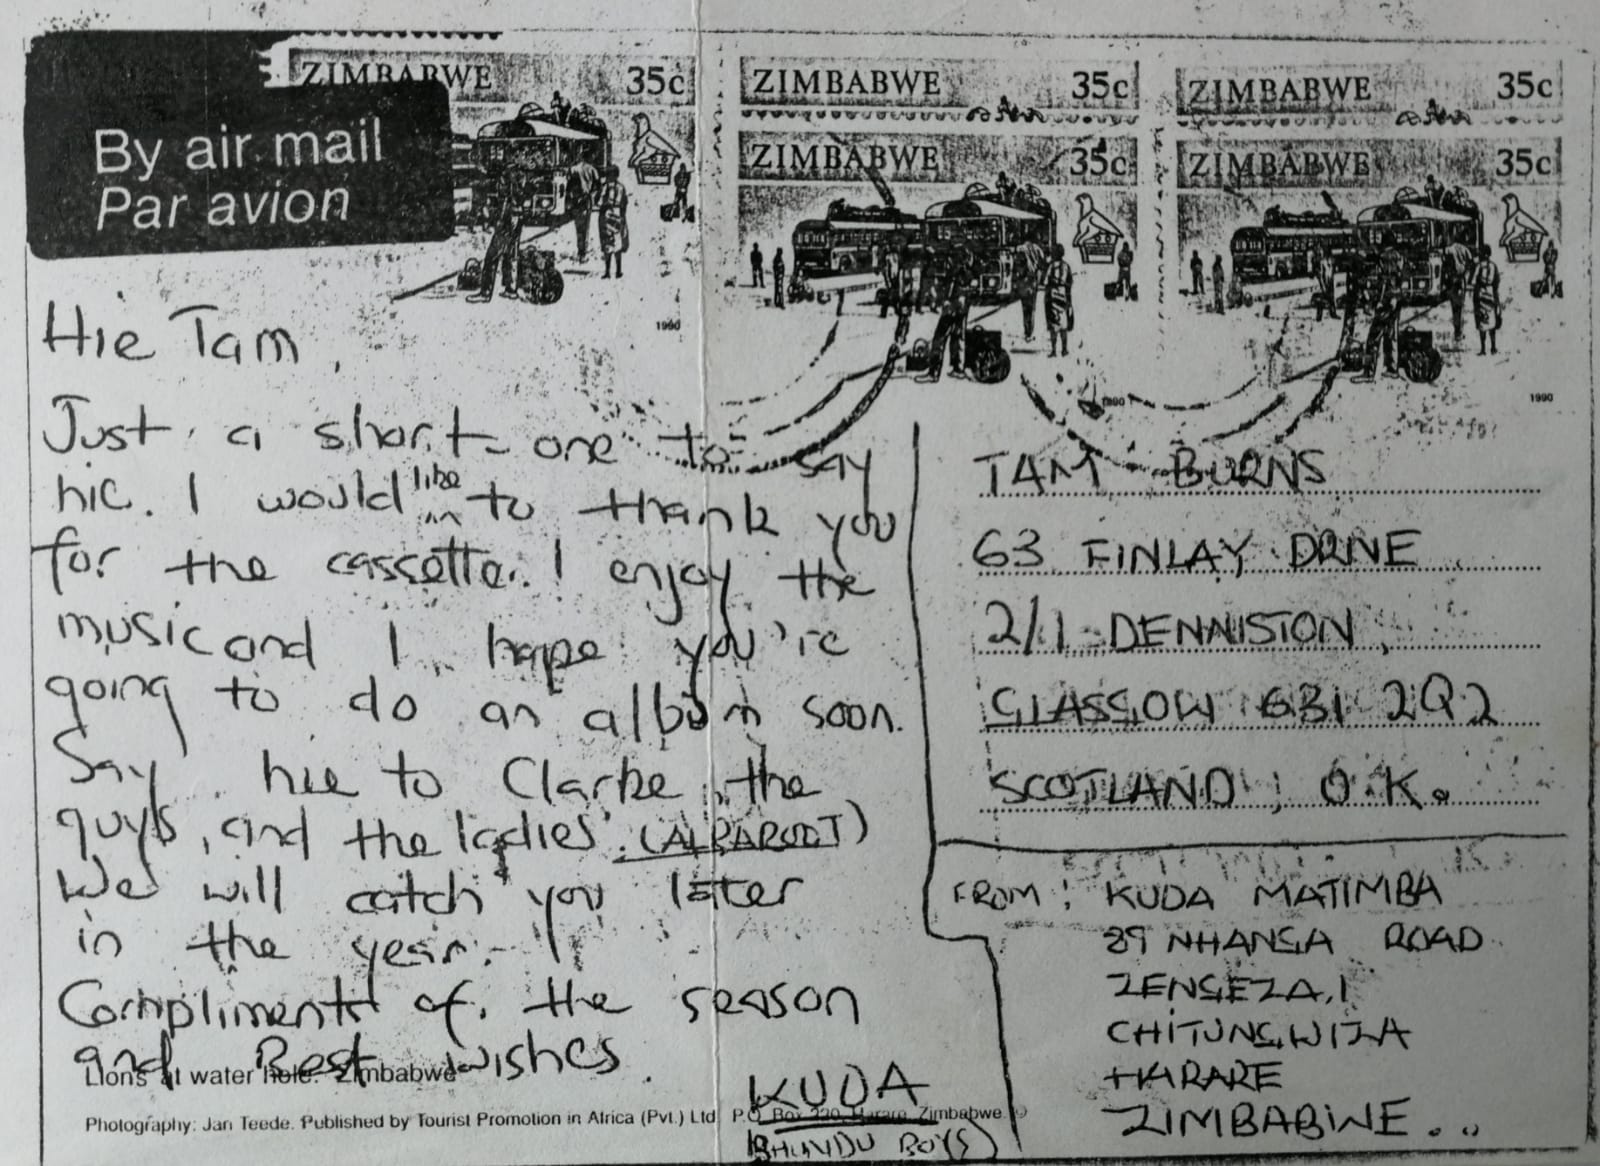 By air mail
Par avion
ZIMBABWE 35c
ZIMBABWE 35c
ZIMBABWE 35c
ZIMBABWE 35c
ZIMBABWE 35c
1990
1990
1990
Hie Tam,
Just a short one to say
hie. I would like to thank you
for the cassette. I enjoy the
music and I hope you're
going to do an album soon.
Say hie to Clarke, the
guys, and the ladies. (ALBAROOT)
We will catch you later
in the year.
Compliments of the season
and Best wishes.
KUDA
(BHUNDU BOYS)
Lions at water hole. Zimbabwe
Photography: Jan Teede. Published by Tourist Promotion in Africa (Pvt.) Ltd. P.O. Box 220, Harare, Zimbabwe. ©
TAM BURNS
63 FINLAY DRIVE
2/1 DENNISTON,
GLASGOW G31 2QZ
SCOTLAND, U.K.
FROM: KUDA MATIMBA
89 NHANGA ROAD
ZENGEZA.1
CHITUNGWIZA
HARARE
ZIMBABWE...